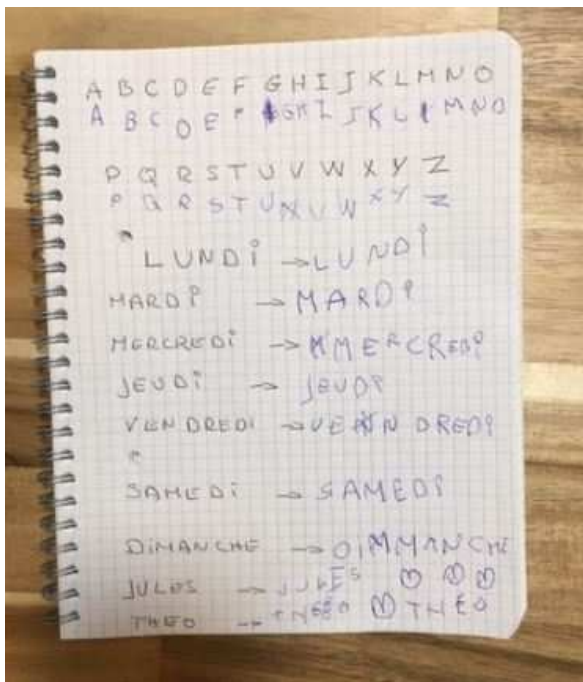 A B C D E F G H I J K L M N O
A B C D E F G H I J K L M N O
P Q R S T U V W X Y Z
P Q R S T U V W X Y Z
LUNDi → LUNDi
MARDi → MARDi
MERCREDi → MMERCREDi
JEUDi → JEUDi
VENDREDI → VENDREDi
SAMEDi → SAMEDi
DiMANCHE → DIMMANCHE
JULES → JULES
THEO → THÉO